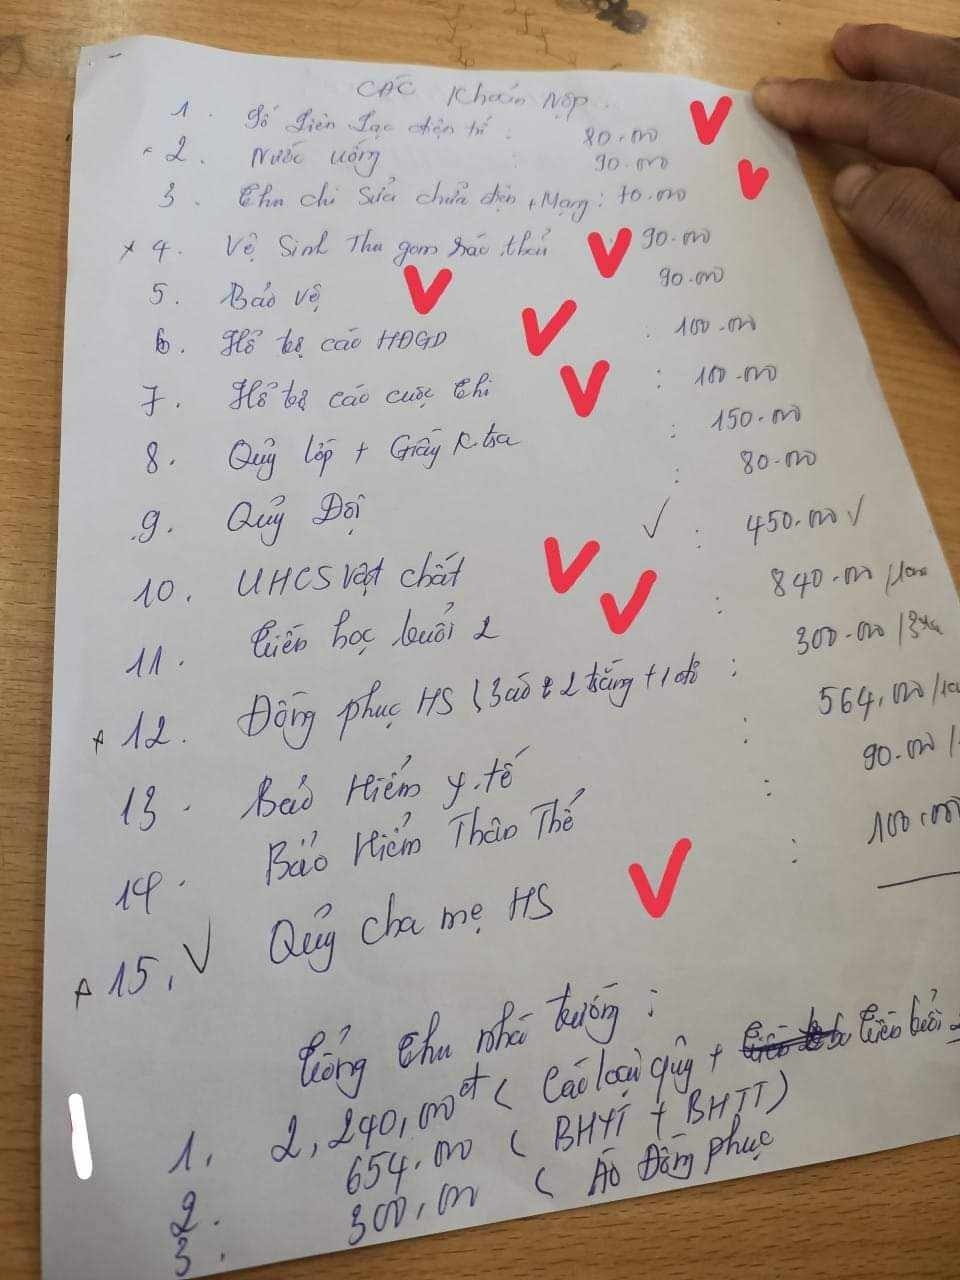 CÁC Khoản Nộp.
1. Sổ Liên Lạc điện tử : 80.000
2. Nước uống : 90.000
3. Thu chi Sửa chữa điện + Mạng : 70.000
x 4. Vệ Sinh Thu gom rác thải : 90.000
5. Bảo vệ 90.000
6. Hổ trợ các HĐGD : 100.000
7. Hổ trợ các cuộc thi : 100.000
8. Quỷ lớp + Giấy K.tra : 150.000
9. Quỷ Đội : 80.000
10. UHCS vật chất : 450.000
11. tiền học buổi 2 : 840.000 /
12. Đồng phục HS (3 áo 2 trắng + 1 đỏ : 300.000 /
13. Bảo Hiểm y.tế : 564,000 /
14. Bảo Hiểm Thân Thể : 90.000 /
15. Quỷ cha mẹ HS : 100.000
Tổng thu nhà trường :
1. 2,240,000đ ( Các loại quỷ + tiền buổi 2
2. 654.000 ( BHYT + BHTT)
3. 300,000 ( Áo Đồng phục